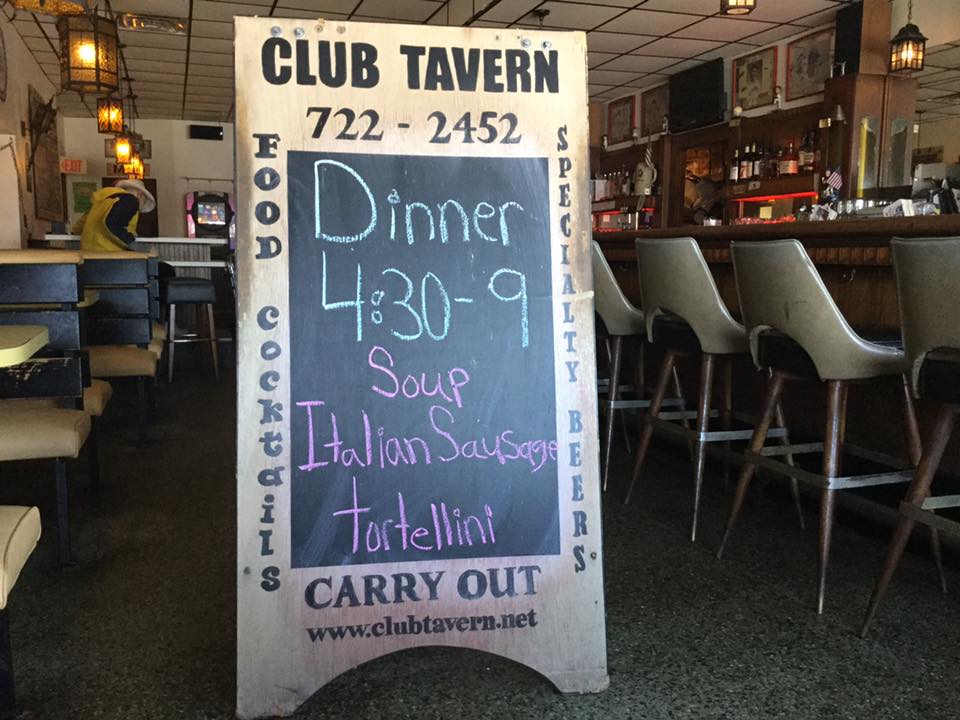 CLUB TAVERN
722 - 2452
FOOD COCKtaiLS
SPECIALTY BEERS
Dinner
4:30-9
Soup
Italian Sausage
tortellini
CARRY OUT
www.clubtavern.net
EXIT